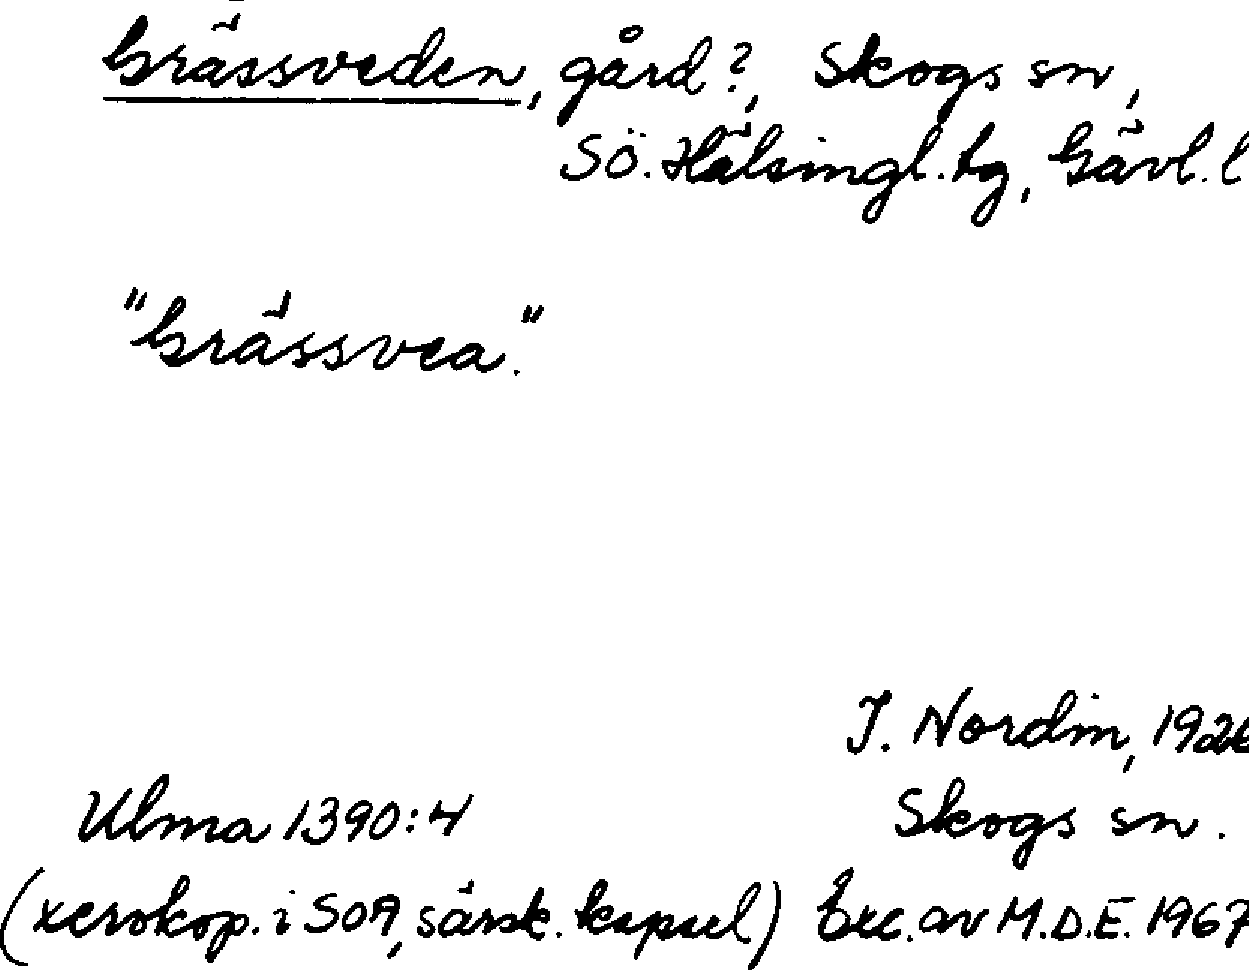 Grässveden, gård?, Skogs sn,
Sö. Hälsingl. tg, Gävl. l
"Grässvea."
J. Nordin, 1926
Skogs sn.
Ulma 1390:4
(xerokop. i SOA, särsk. kapsel) Exc. av M.D.E. 1967